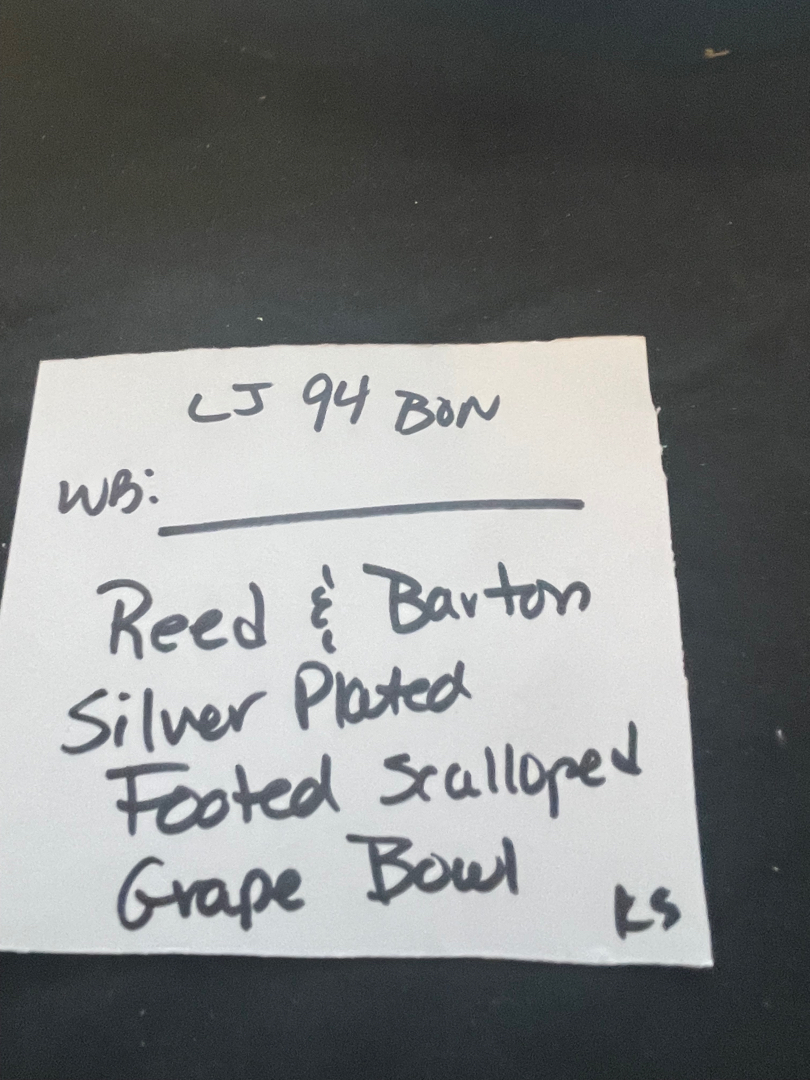 LJ 94 BON
WB:
Reed & Barton
Silver Plated
Footed Scalloped
Grape Bowl
KS